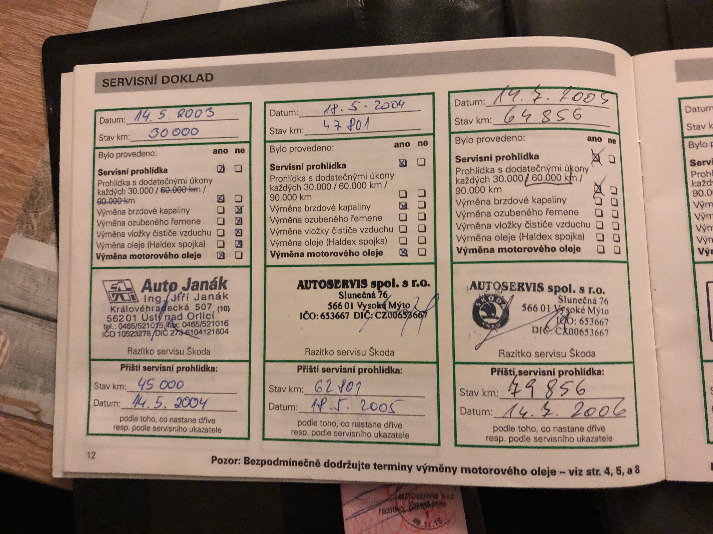 SERVISNÍ DOKLAD
Datum: 14.5.2003
Stav km: 30000
Bylo provedeno: ano ne
Servisní prohlídka
Prohlídka s dodatečnými úkony
každých 30.000 / 60.000 km /
60.000 km
Výměna brzdové kapaliny
Výměna ozubeného řemene
Výměna vložky čističe vzduchu
Výměna oleje (Haldex spojka)
Výměna motorového oleje
Auto Janák
Ing. Jiří Janák
Královéhradecká 507, (10)
56201 Ústí nad Orlicí
tel.: 0465/521015, fax: 0465/521016
IČO 10523278 / DIČ 273-6104121804
Razítko servisu Škoda
Příští servisní prohlídka:
Stav km: 45 000
Datum: 14.5.2004
podle toho, co nastane dříve
resp. podle servisního ukazatele
Datum: 18.5.2004
Stav km: 47801
Bylo provedeno: ano ne
Servisní prohlídka
Prohlídka s dodatečnými úkony
každých 30.000 / 60.000 km /
90.000 km
Výměna brzdové kapaliny
Výměna ozubeného řemene
Výměna vložky čističe vzduchu
Výměna oleje (Haldex spojka)
Výměna motorového oleje
AUTOSERVIS spol. s r.o.
Slunečná 76
566 01 Vysoké Mýto
IČO: 653667 DIČ: CZ00653667
Razítko servisu Škoda
Příští servisní prohlídka:
Stav km: 62801
Datum: 18.5.2005
podle toho, co nastane dříve
resp. podle servisního ukazatele
Datum: 14.7.2005
Stav km: 64856
Bylo provedeno: ano ne
Servisní prohlídka
Prohlídka s dodatečnými úkony
každých 30.000 / 60.000 km /
90.000 km
Výměna brzdové kapaliny
Výměna ozubeného řemene
Výměna vložky čističe vzduchu
Výměna oleje (Haldex spojka)
Výměna motorového oleje
AUTOSERVIS spol. s r.o.
Slunečná 76
566 01 Vysoké Mýto
IČO: 653667
DIČ: CZ00653667
Razítko servisu Škoda
Příští servisní prohlídka:
Stav km: 79856
Datum: 14.7.2006
podle toho, co nastane dříve
resp. podle servisního ukazatele
12
Pozor: Bezpodmínečně dodržujte termíny výměny motorového oleje – viz str. 4, 5, a 8